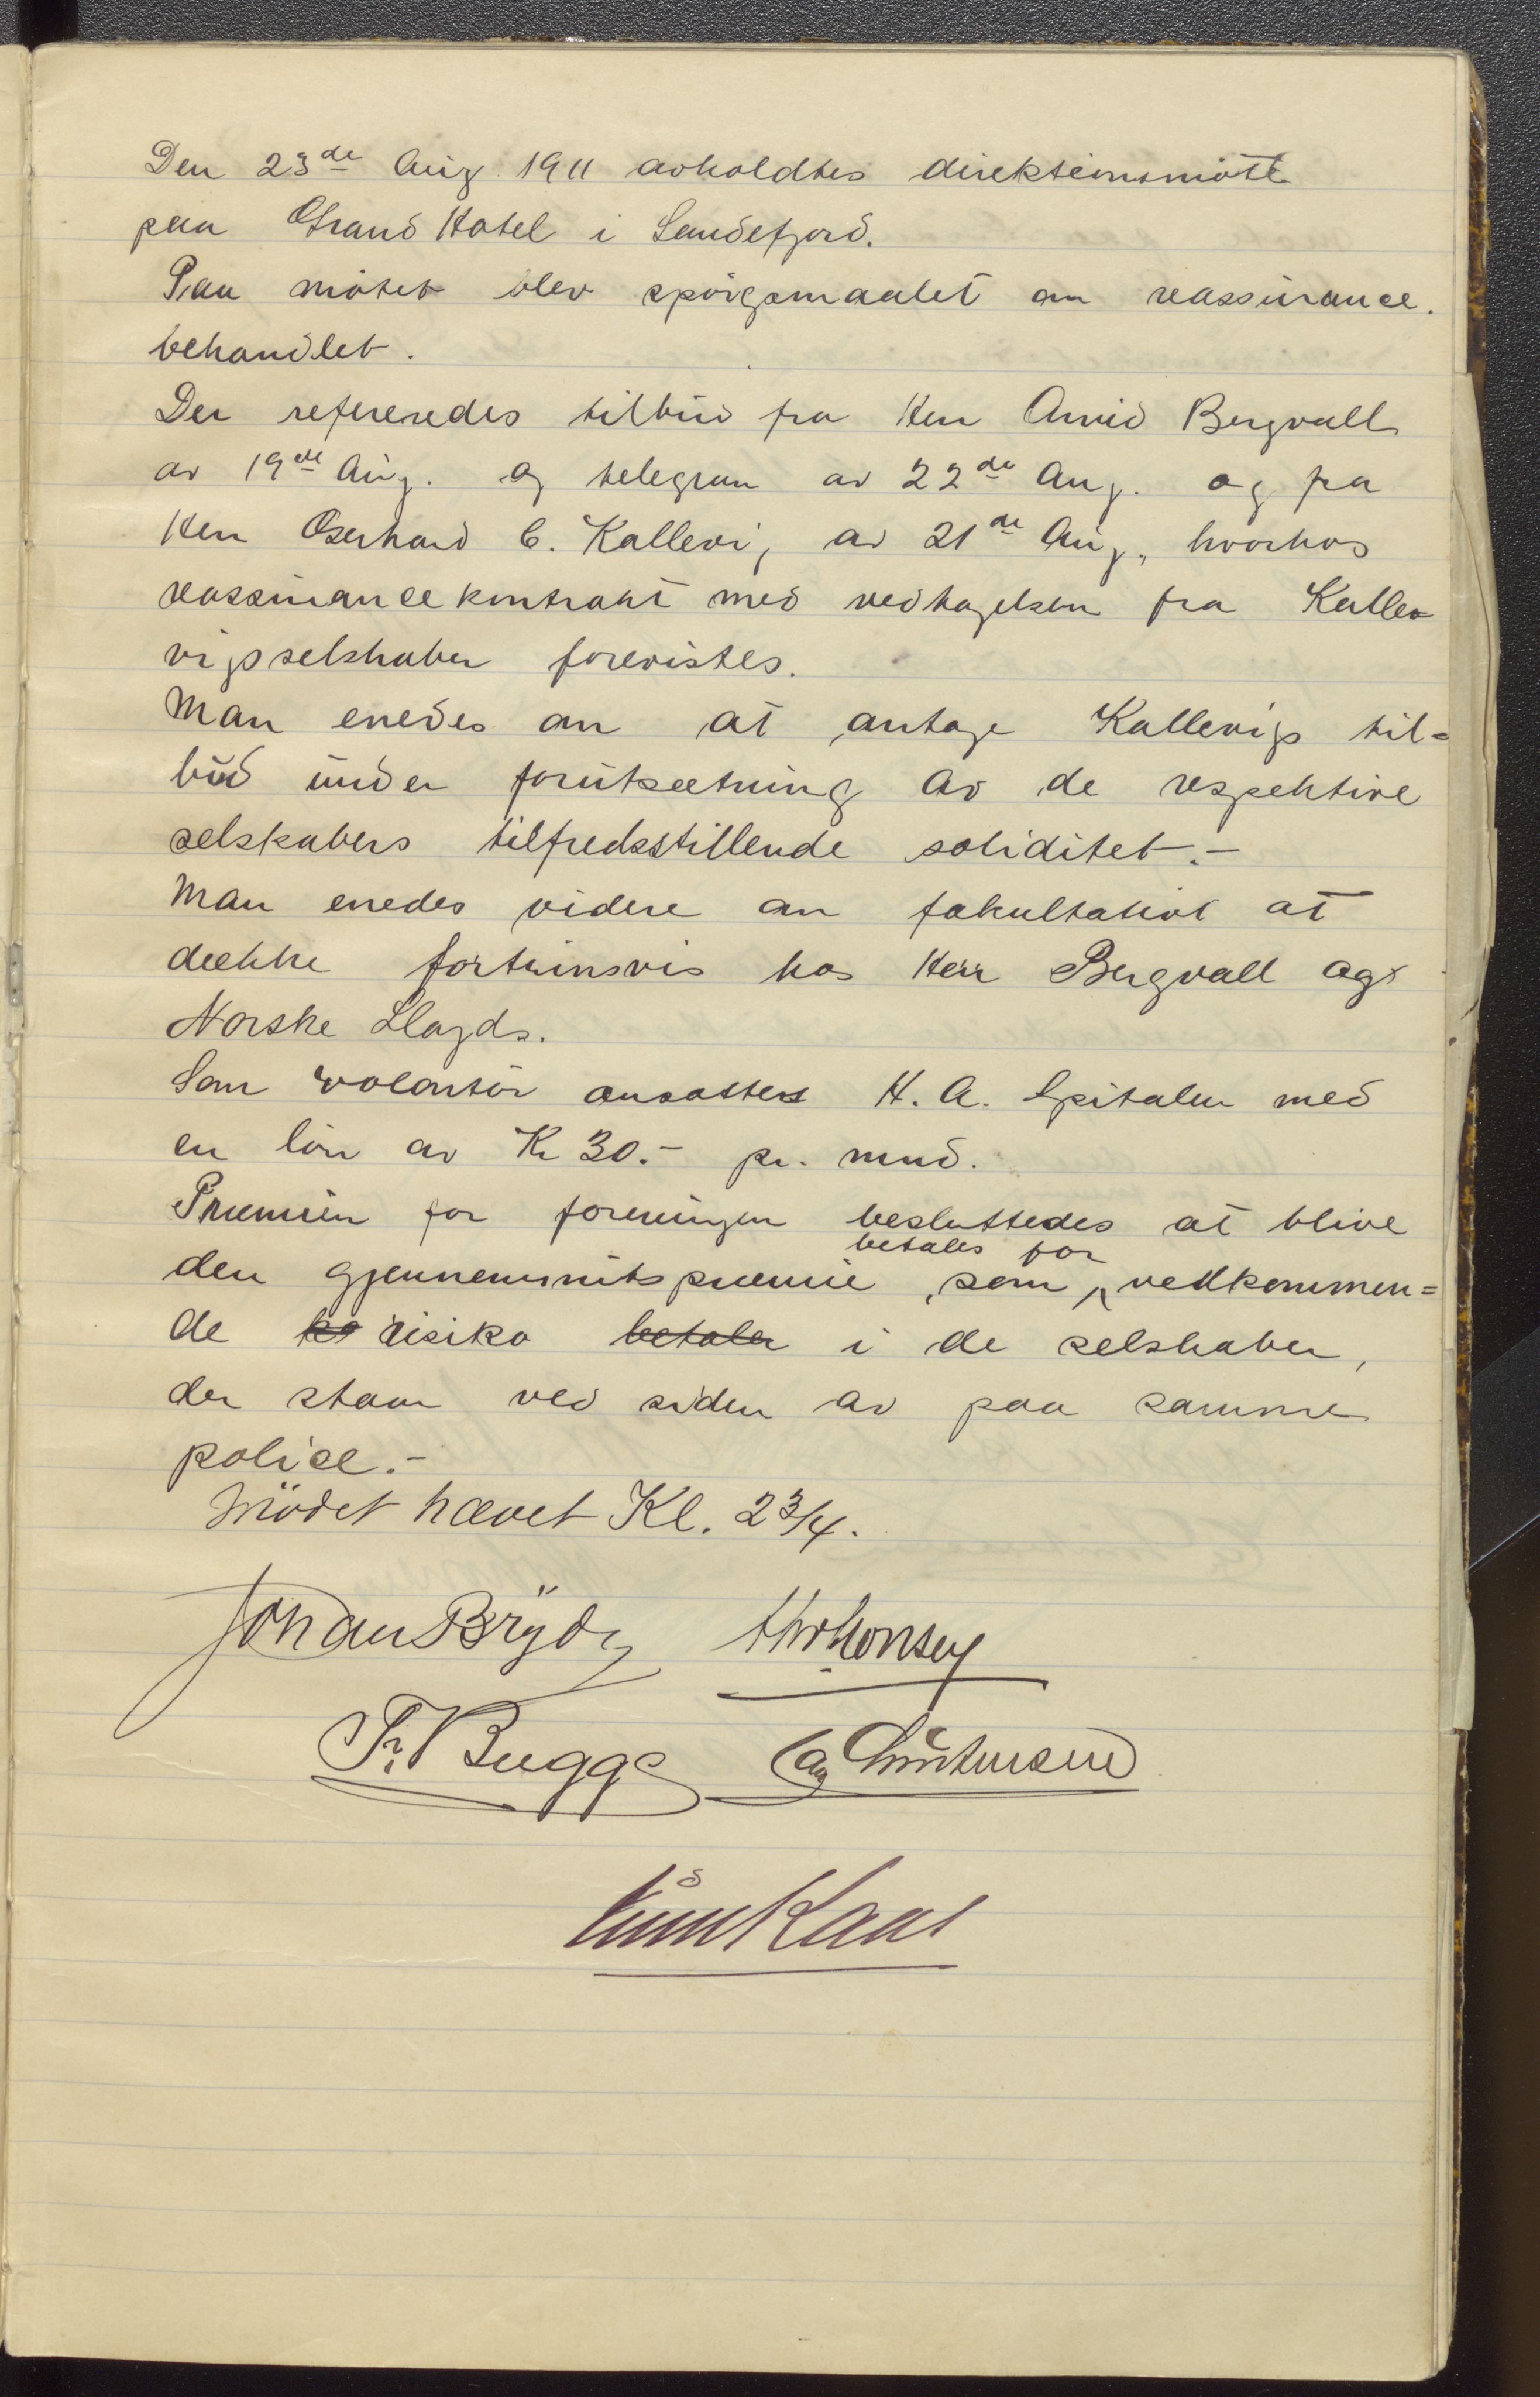 Den 23de Aug. 1911 avholdtes direktionsmöte
paa Grand Hotel i Sandefjord.
Paa mötet blev spörgsmaalet om reassurance.
behandlet.
Der refereredes tilbud fra Herr Arvid Bergvall
av 19de Aug. og telegram av 22de Aug. og fra
Herr Gerhard C. Kallevig av 21de Aug., hvorhos
reassurancekontrakt med vedtagelsen fra Kalle
vigsselskaber forevistes.
Man enedes om at antage Kallevigs til=
bud under forutsætning av de respektive
selskabers tilfredsstillende soliditet.-
Man enedes videre om fakultativt at
dække fortrinsvis hos Herr Bergvall og
Norske Lloyds.
Som volontör ansattes H. A. Spitalen med
en lön av Kr 30.- pr. mnd.
Præmien for foreningen besluttedes at blive
betales for
den gjennemsnitspræmie, som vedkommen=
de ko risiko betaler i de selskaber,
der staar ved siden av paa samme
police.-
Mödet hævet Kl. 2 3/4.
Johan Bryde Thv Monsen
Fr. Bugge Chr. Christensen
Kaas